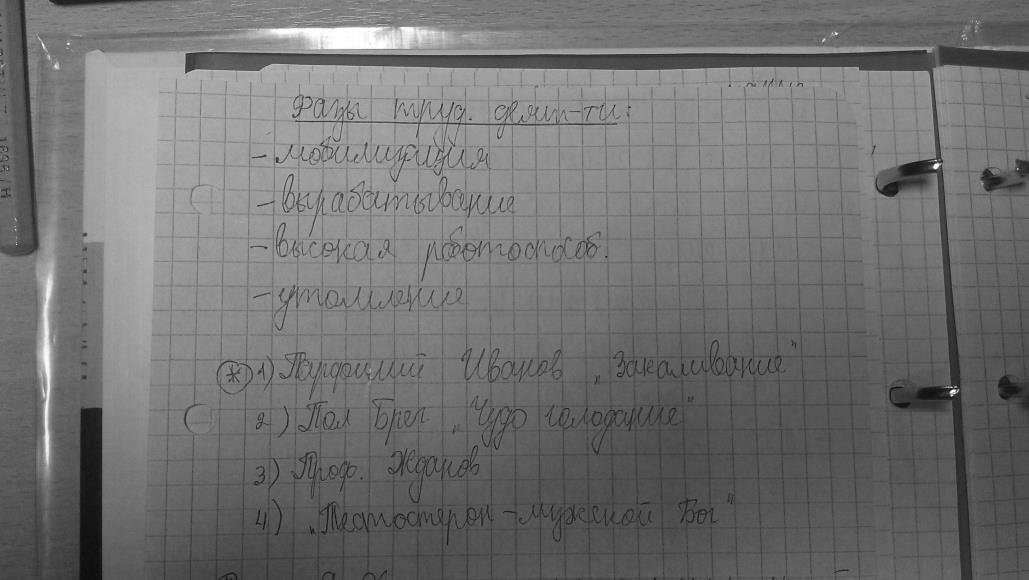 Фазы труд. деят-ти:
- мобилизация
- вырабатывание
- высокая работоспособ.
- утомление
* 1) Парфирий Иванов „Закаливание"
2) Пол Брег „Чудо голодание"
3) Проф. Жданов
4) „Тестостерон - мужской Бог"